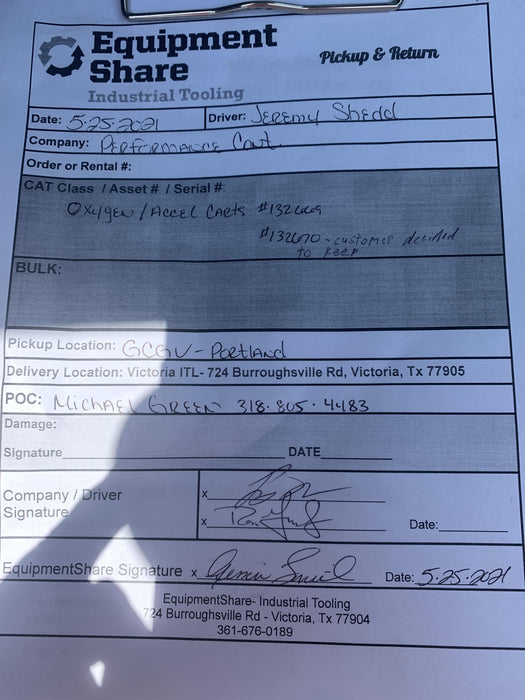 Equipment
Share
Pickup & Return
Industrial Tooling
Date: 5-25-2021 Driver: Jeremy Shedd
Company: Performance Cont.
Order or Rental #:
CAT Class / Asset # / Serial #:
Oxygen / Accel Carts #132669
#132670 - customer decided
to keep
BULK:
Pickup Location: GCGV - Portland
Delivery Location: Victoria ITL- 724 Burroughsville Rd, Victoria, Tx 77905
POC: Michael Green 318.805.4483
Damage:
Signature DATE
Company / Driver
Signature
x
x
Date:
EquipmentShare Signature x Date: 5-25-2021
EquipmentShare- Industrial Tooling
724 Burroughsville Rd - Victoria, Tx 77904
361-676-0189